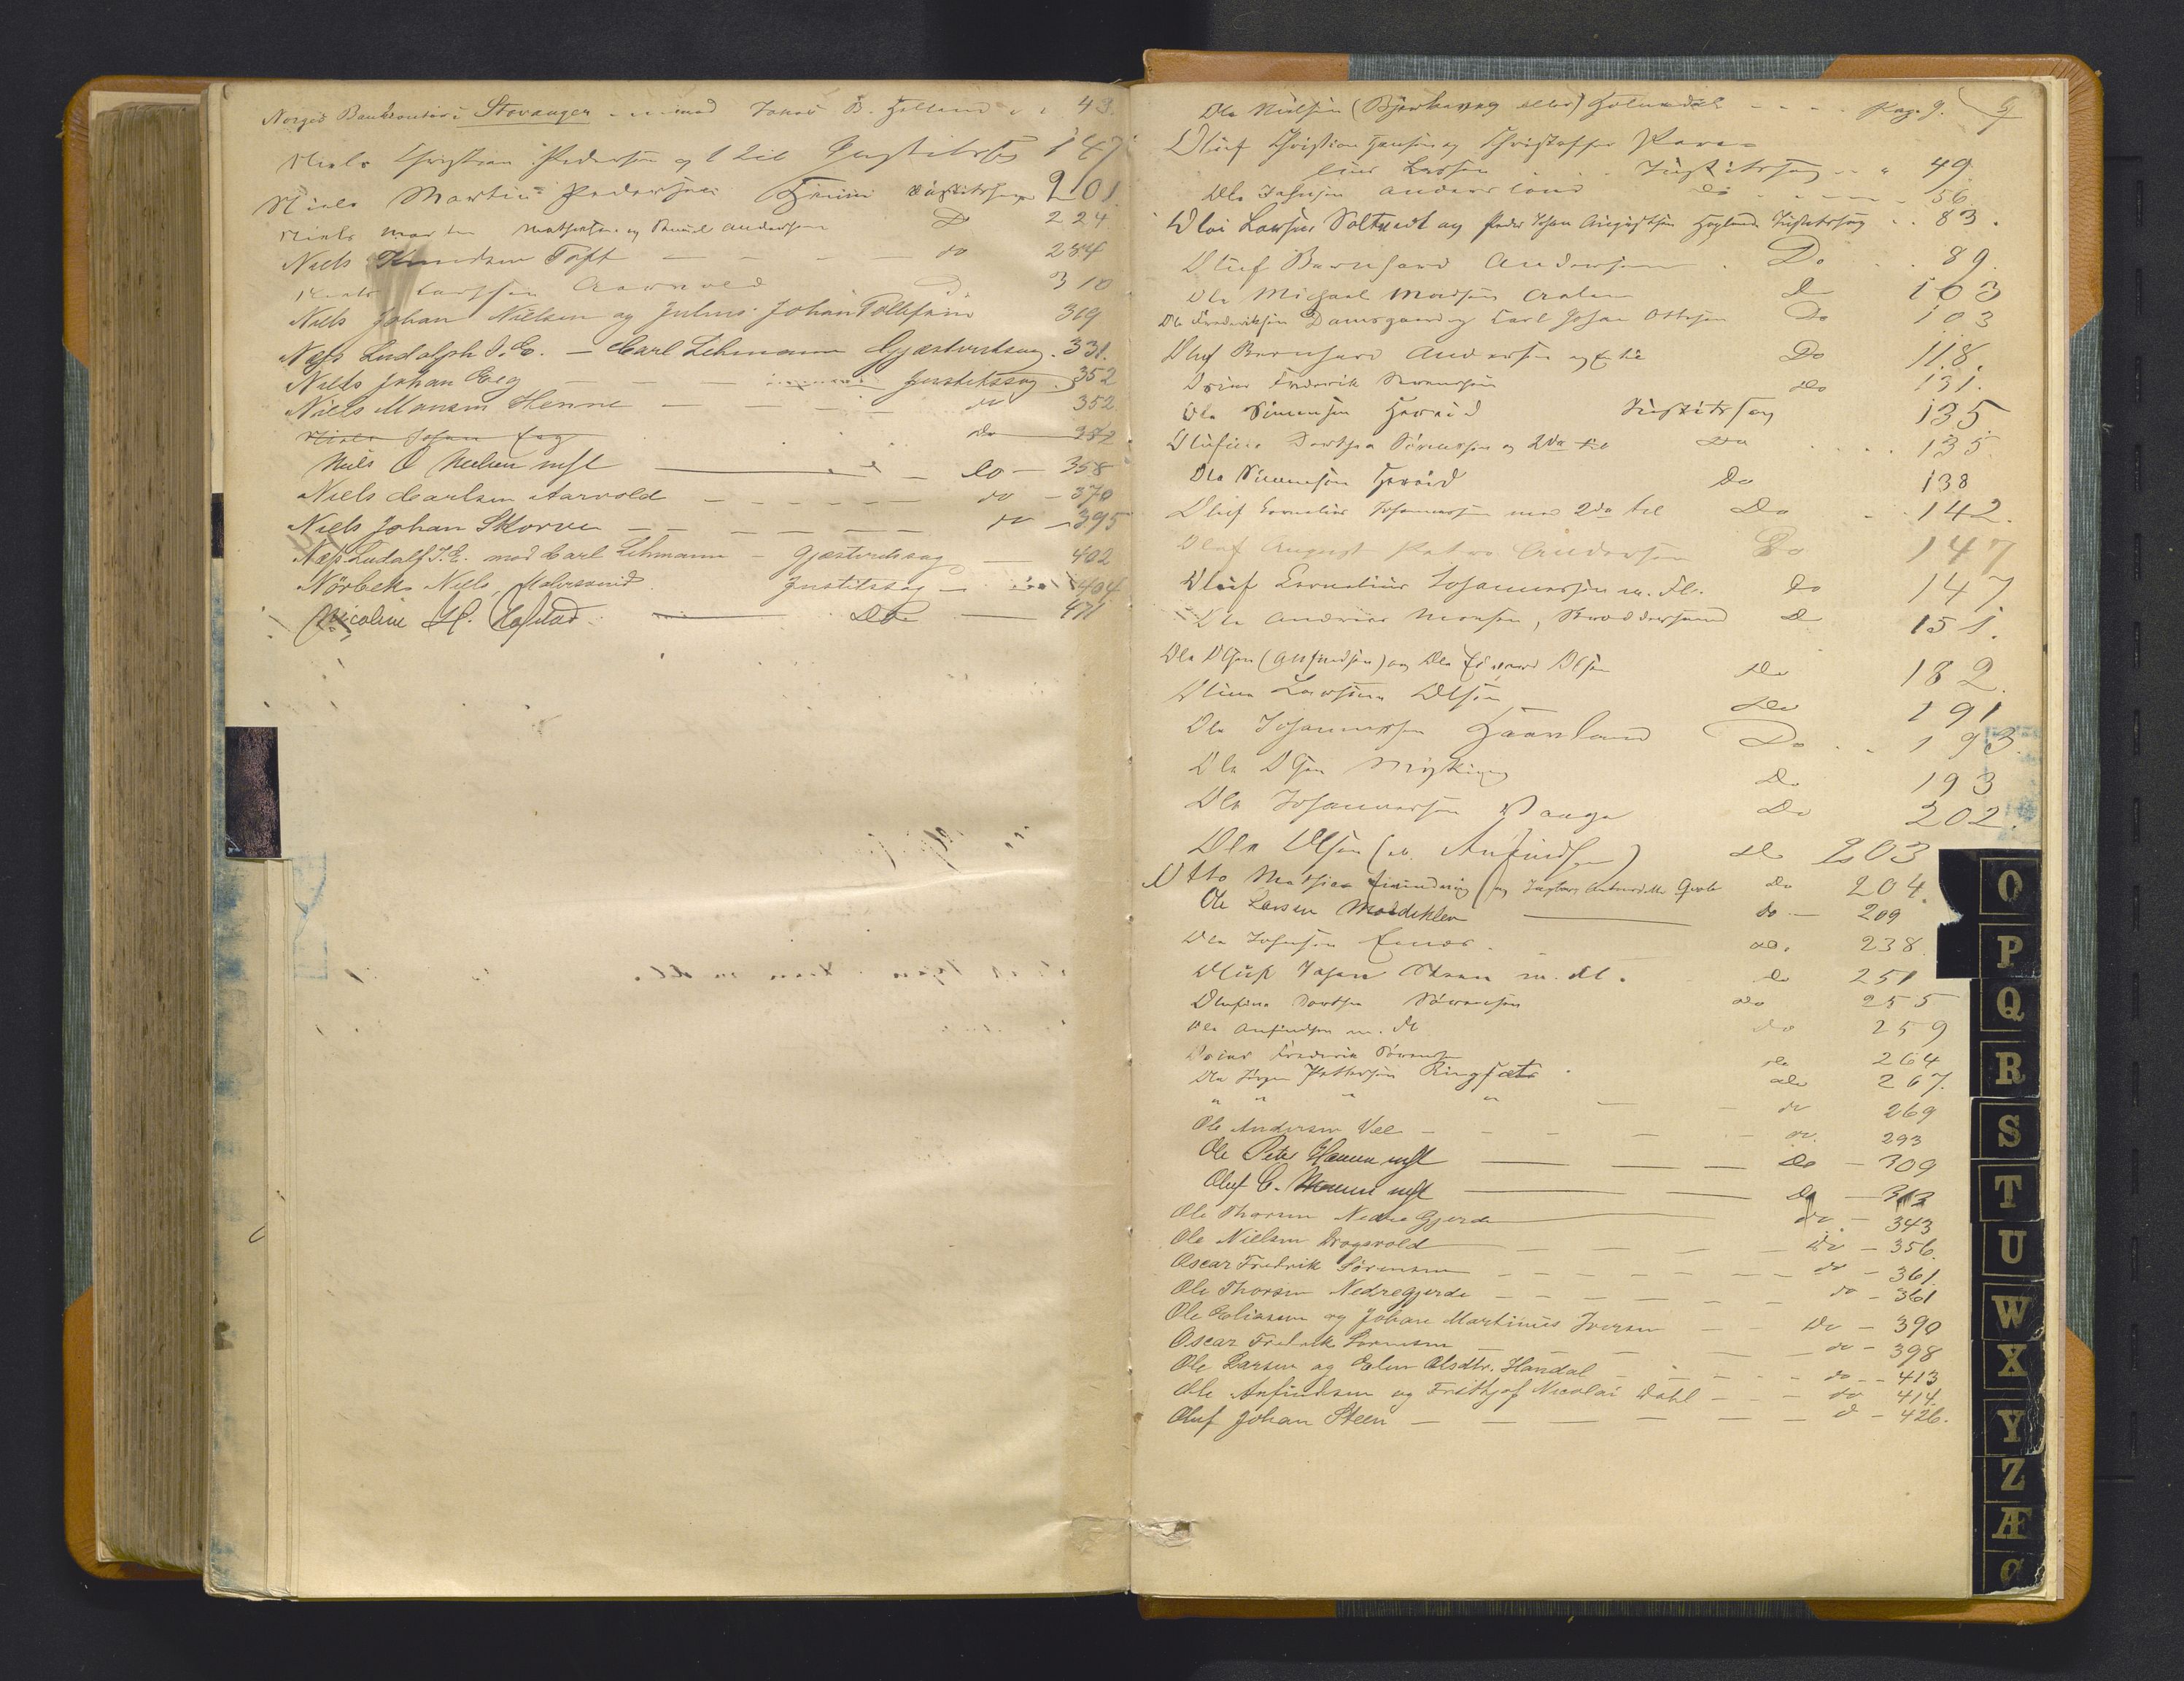 Norges Bankkontor i Stavanger mod Jakob B. Helland 43.
Niels Christian Pedersen og 1 til Justitssag 147
Niels Martin Pedersen Justitssag 201.
Niels Martin Mathiesen og Anderssen Do 224
Niels Knudsen Toft do 284
Niels Carlsen Aarvold D 310
Niels Johan Nielsen og Julius Johan Tollefsen 319
Næss Ludolph I. E. — Carl Lehmann Gjæsteretssag. 331.
Niels Johan Eeg Justitssag. 352
Niels Monsen Stenne do 352
Niels Johan Eeg do 352
Niels O Nielsen mfl do — 358
Niels Carlsen Aarvold do — 370
Niels Johan Skorve do — 395
Næss Ludolf I. E. mod Carl Lehmann — Gjæsteretssag — 402
Nörbek, Niels, Malersvend Justitssag — 404
Nicoline H. Hafstad Do 471
Ole Nielsen (Bjørkhaug eller) Holmedal pag. 9.
Oluf Christian Hansen og Christoffer
Larsen Justitssag 49.
Ole Johnsen Andersland Do 56.
Olai Larsen Soltvedt og Peder Johan Augustsen Hopland Justitssag 83.
Oluf Bernhard Andersen Do 89.
Ole Michael Madsen Do 103
Ole Frederiksen Damsgaard og Carl Johan Ottesen Do 103
Oluf Bernhard Andersen og En til Do 118.
Oscar Frederik Sørensen do 131.
Ole Simonsen Hereid Justitssag 135.
Olufine Dorthea Sörenssen og 2de til Do 135.
Ole Simonsen Hereid Do 138
Oluf Cornelius Johannessen med 2de til Do 142.
Oluf August Andersen Do 147
Oluf Cornelius Johannessen m. Fl. Do 147
Ole Andreas Monsen, D 151.
Ole Olsen (Anfindsen) og Ole Edvard Olsen Do 182.
Olina Larsine Olsen Do 191
Ole Johannessen Haavland Do 193.
Ole Olsen Myking Do 193
Ole Johannessen Vange Do 202.
Ole Olsen (el. Anfindsen) do 203
Otto Mathias do 204.
Ole Larsen Moldeklev do — 209
Ole Johnsen do. 238.
Oluf Johan Steen m. fl. do 251
Olufine Dorthea Sörensen do 255
Ole Anfindsen m. fl do 259
Oscar Frederik Sörensen do 264
Ole Jörgen Pettersen Ringsæt do 267.
" " " " do 269
Ole Andersen Vee do. 293
Ole Peter Hansen mfl Do — 309
Oluf C. mfl Do — 313
Ole Thorsen Nedre Gjerde do — 343
Ole Nielsen Dragsvold do — 356.
Oscar Fredrik Sörensen do — 361.
Ole Thorsen Nedregjerde do — 361
Ole Eliassen og Johan Martinius Iversen Do — 390
Oscar Fredrik Sörensen do — 398
Ole Larsen og Elen Olsdtr. Handal do — 413
Ole Anfindsen og Frithjof Nicolai Dahl do 414.
Oluf Johan Steen d — 426.
O
P
Q
R
S
T
U
W
X
Y
Z
Æ
Ø